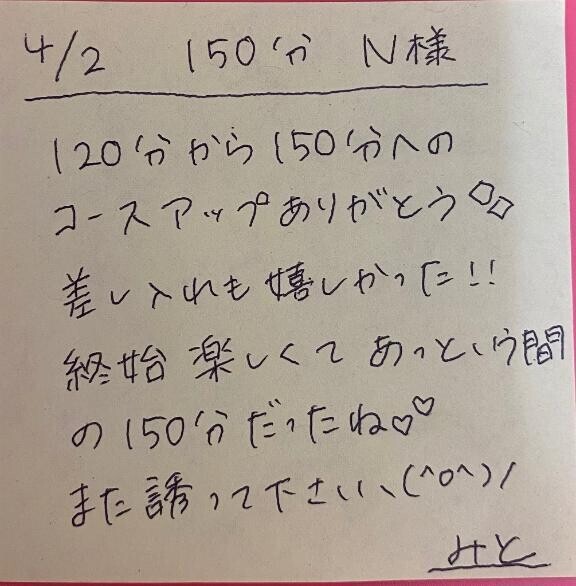 4/2 150分 N様
120分から150分への
コースアップありがとう◇◇
差し入れも嬉しかった!!
終始楽しくてあっという間
の150分だったね♡♡
また誘って下さい、(^o^)/
みと